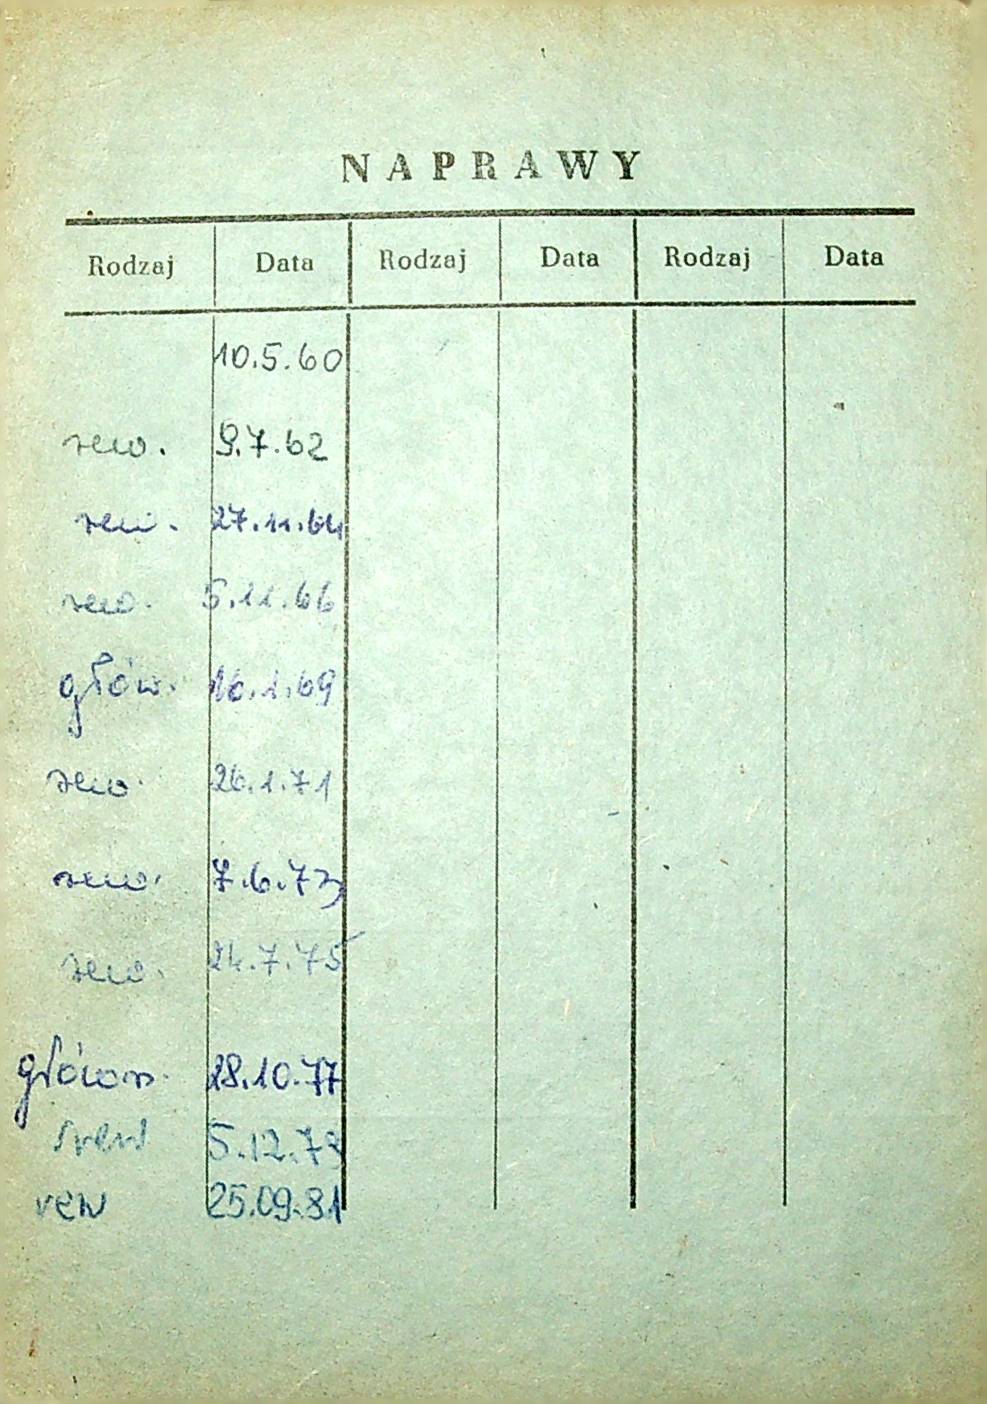 NAPRAWY
Rodzaj Data Rodzaj Data Rodzaj Data
10.5.60
rew. 9.7.62
rew. 27.11.64
rew. 5.11.66
głów. 16.1.69
rew. 26.1.71
rew. 7.6.73
rew. 24.7.75
główn. 28.10.77
5.12.79
rew 25.09.81